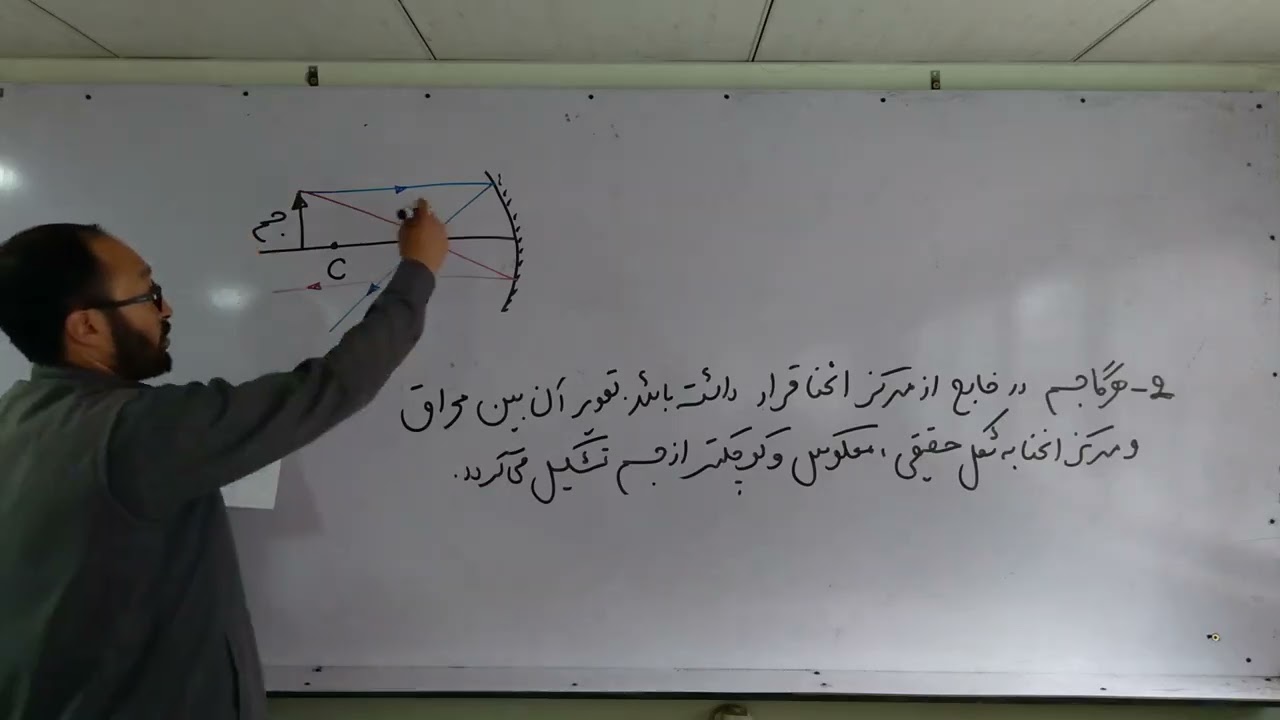 جسم
C
2- هرگاجسم در خارج از مرکز انحنا قرار داشته باشد. تصویر آن بین محراق
و مرکز انحنا به شکل حقیقی، معکوس و کوچکتر از جسم تشکیل می‌گردد.